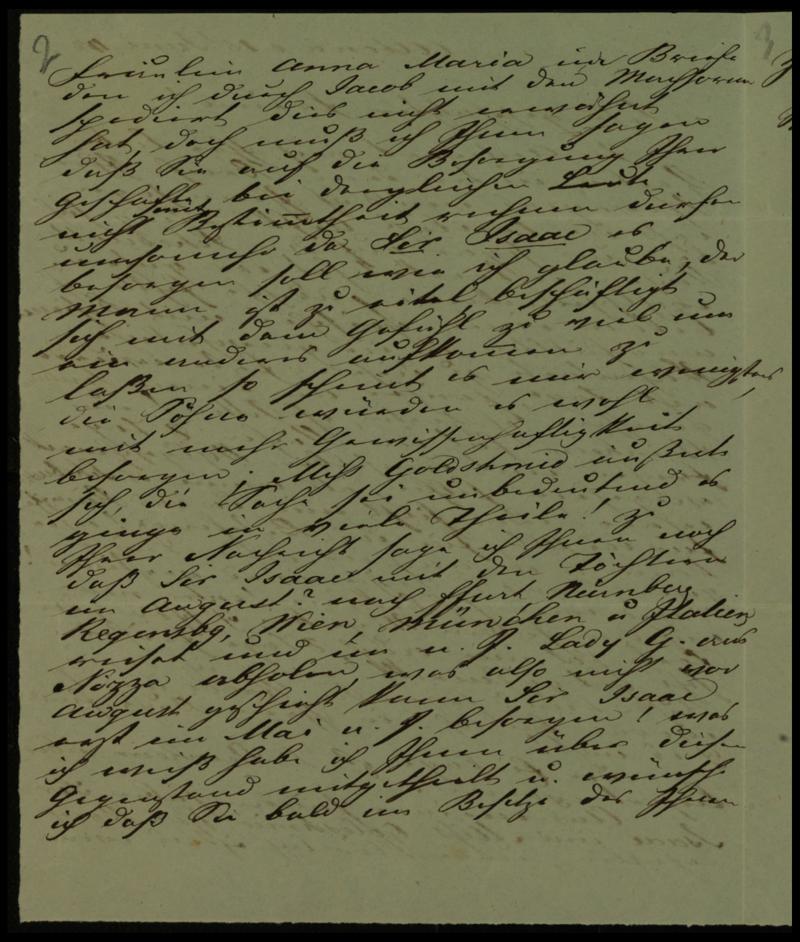 2
Fräulein Anna Maria im Briefe
den ich durch Jacob mit den
spedirt dies nicht erwähnt
hat, doch muß ich Ihnen sagen
daß Sie auf die Besorgung Ihrer
Geschäfte bei dergleichen Leute
nicht mit Bestimmtheit rechnen dürfen
umsomehr da Sir Isaac es
besorgen soll wie ich glaube, der
Mann ist zu viel beschäftigt
sich mit dem Gefühl zu viel um
ein anderes aufkommen zu
laßen so scheint es mir wenigstens,
die Söhne würden es wohl
mit mehr Gewissenhaftigkeit
besorgen. Miss Goldshmid äußerte
sich, die Sache sei unbedeutend es
ginge in viele Theile! zu
Ihrer Nachricht sage ich Ihnen noch
daß Sir Isaac mit den Töchtern
im August? nach ffurt Nürnberg
Regensbg, Wien, München u Italien
reiset und im n. J. Lady G. aus
Nizza abholen, was also nicht vor
August geschieht kann Sir Isaac
erst im Mai n. J. besorgen! was
ich weiß habe ich Ihnen über diesen
Gegenstand mitgetheilt u. wünsche
ich daß Sie bald im Besitze des Ihnen